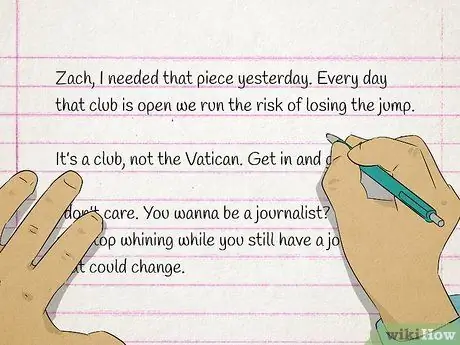 Zach, I needed that piece yesterday. Every day
that club is open we run the risk of losing the jump.
It's a club, not the Vatican. Get in and
don't care. You wanna be a journalist?
top whining while you still have a jo
at could change.
wikiHow